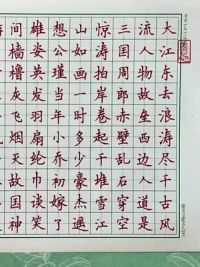 大江东去浪涛尽千古风
流人物故垒西边人道是
三国周郎赤壁乱石穿空
惊涛拍岸卷起千堆雪江
山如画一时多少豪杰遥
想公瑾当年小乔初嫁了
雄姿英发羽扇纶巾谈笑
间樯橹灰飞烟灭故国神